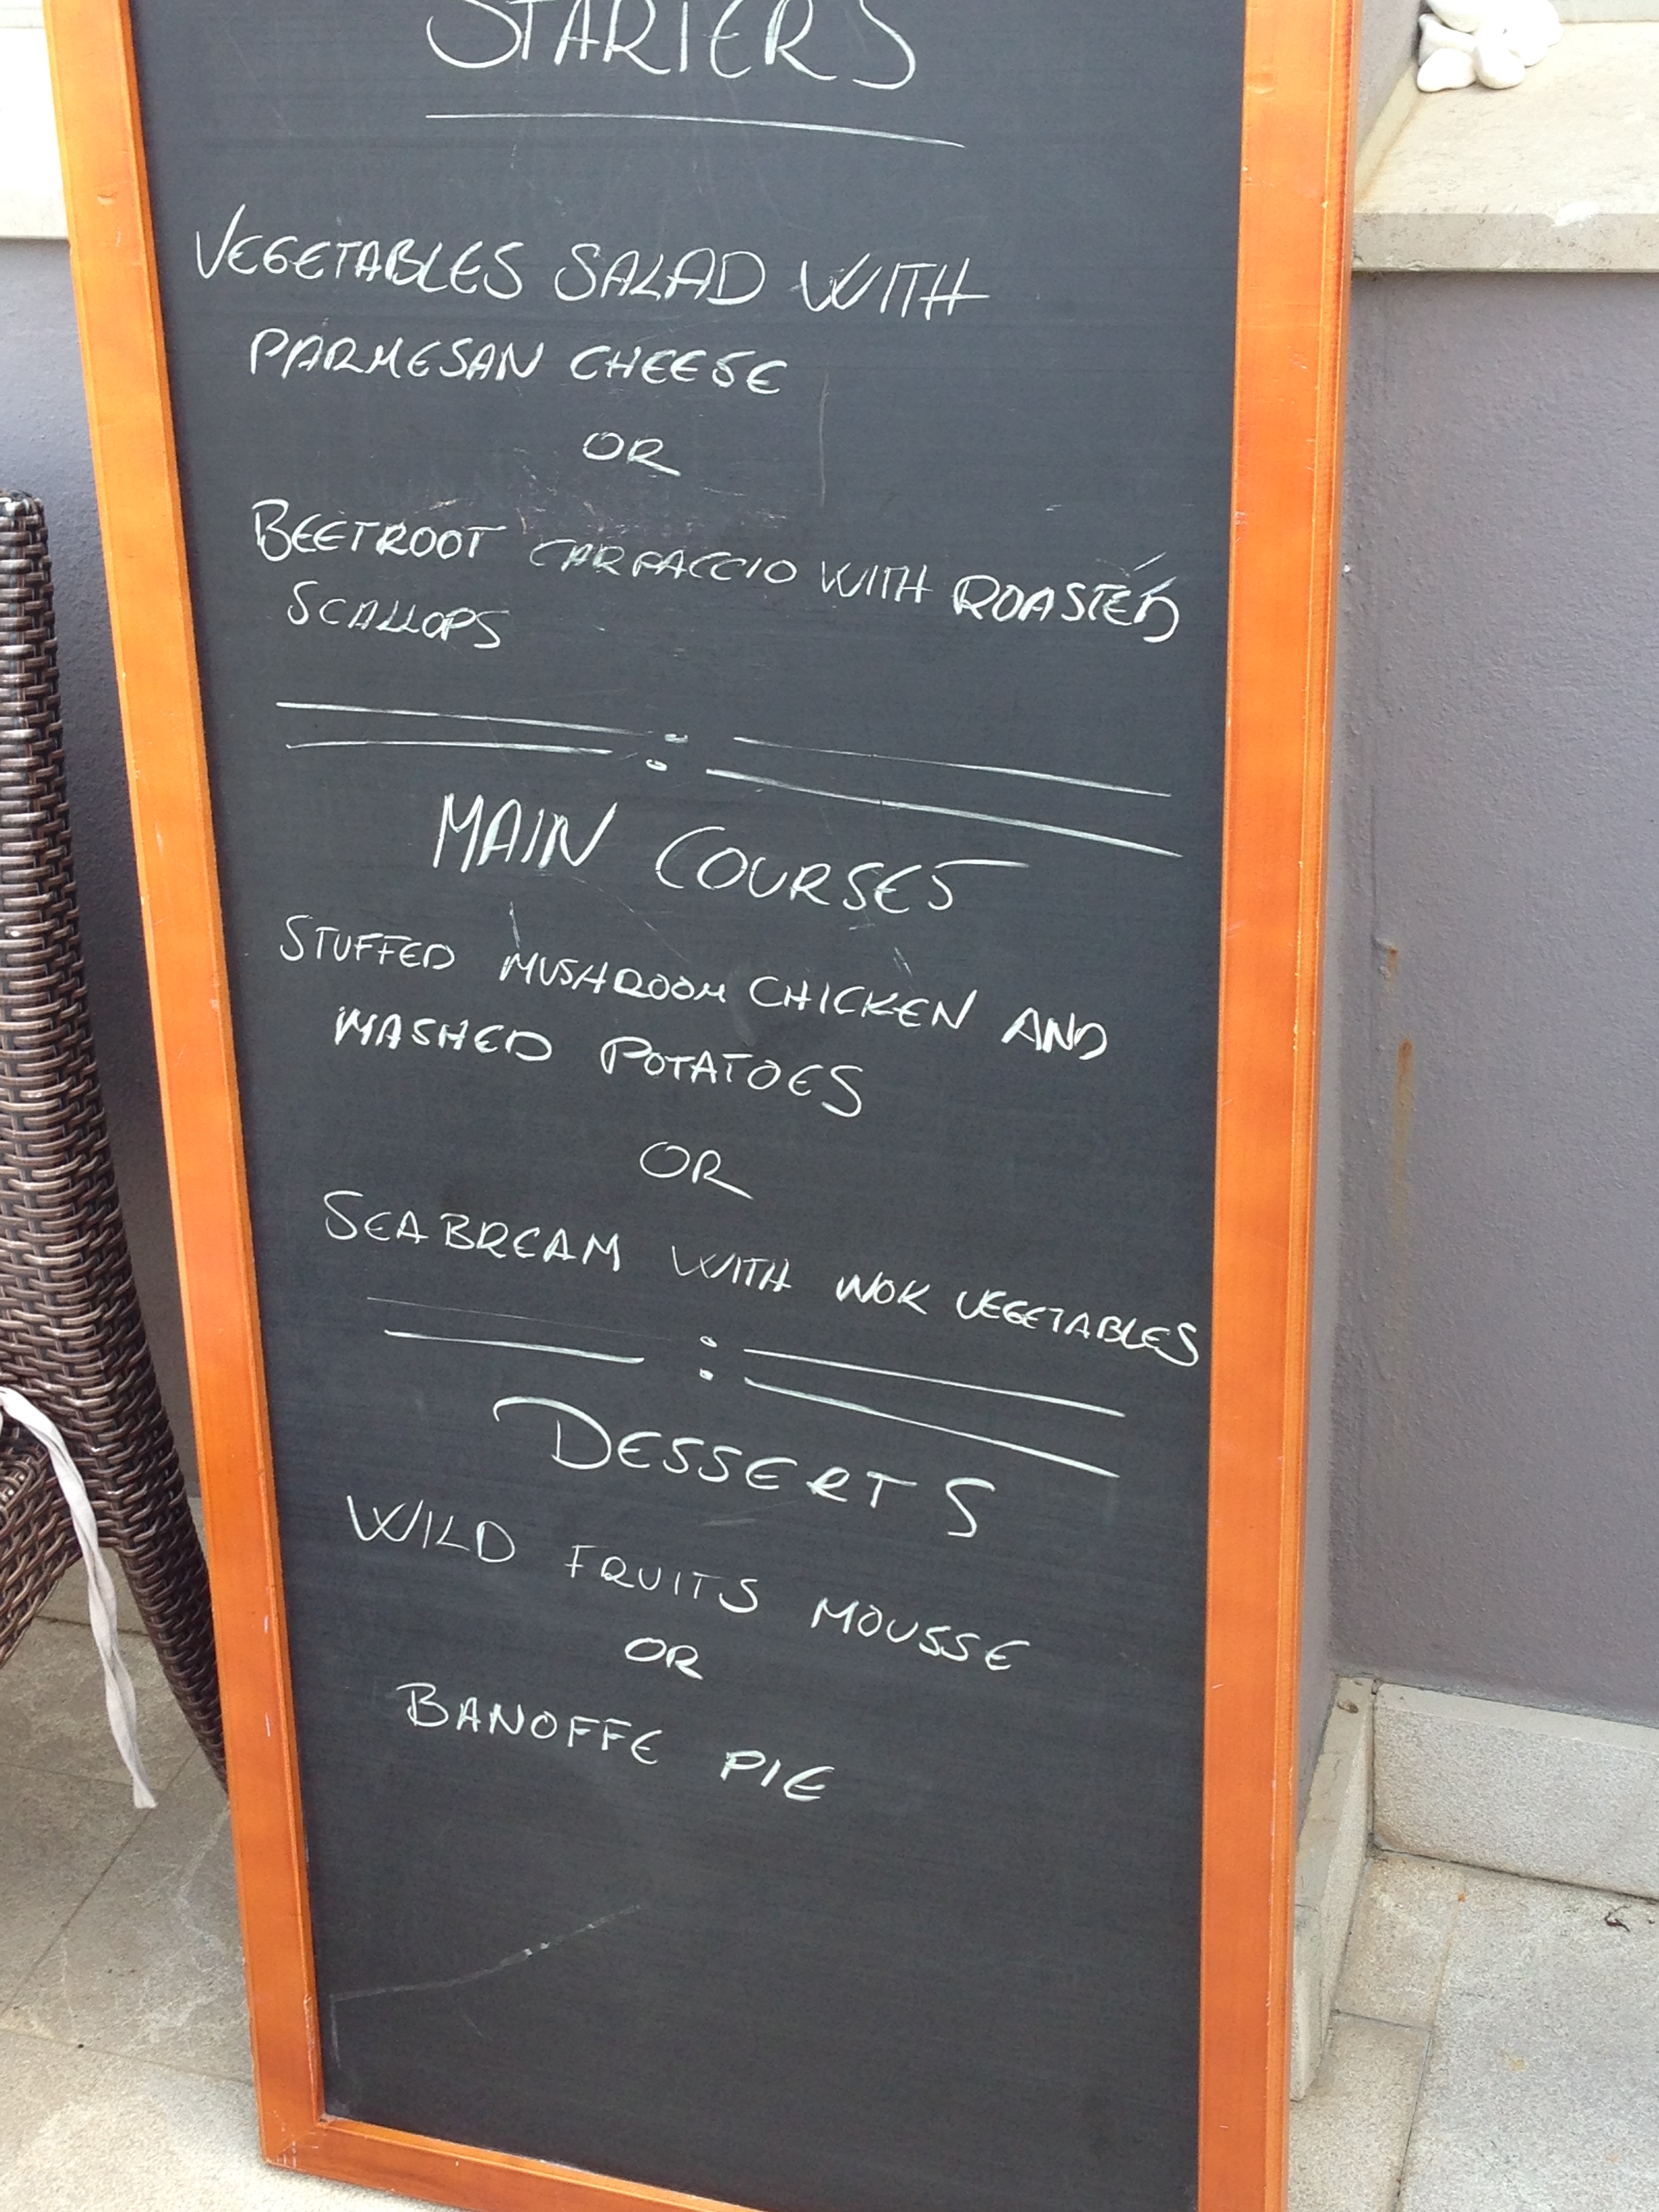 STARTERS
VEGETABLES SALAD WITH
PARMESAN CHEESE
OR
BEETROOT CARPACCIO WITH ROASTED
SCALLOPS
MAIN COURSES
STUFFED MUSHROOM CHICKEN AND
MASHED POTATOES
OR
SEABREAM WITH WOK VEGETABLES
DESSERTS
WILD FRUITS MOUSSE
OR
BANOFFE PIE